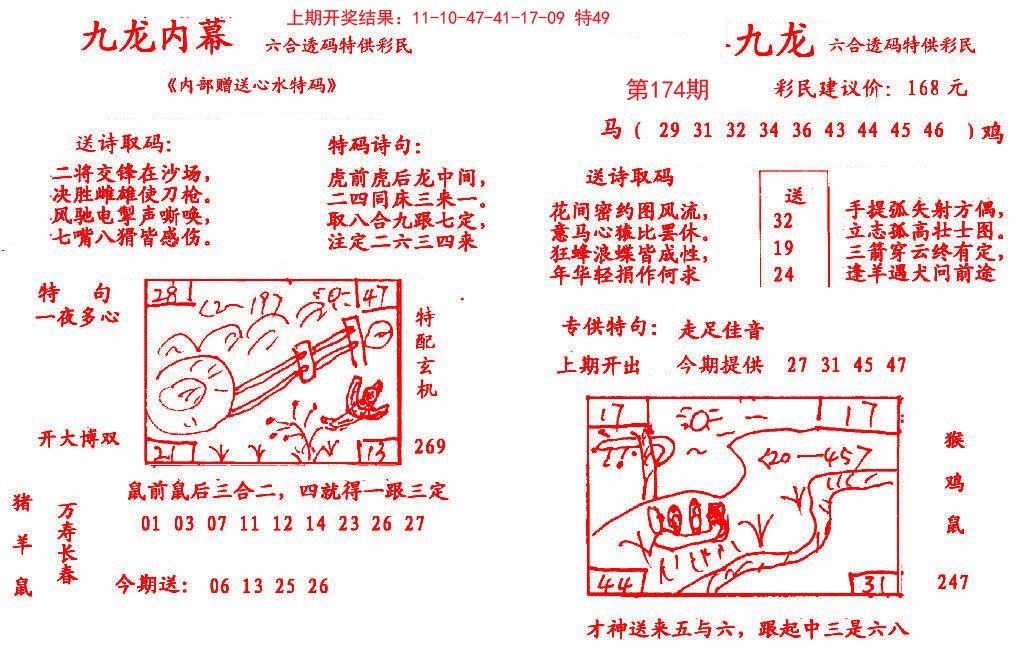 上期开奖结果：11-10-47-41-17-09 特49
九龙内幕 六合透码特供彩民
《内部赠送心水特码》
送诗取码：
二将交锋在沙场，
决胜雌雄使刀枪。
风驰电掣声嘶唤，
七嘴八猾皆感伤。
特码诗句：
虎前虎后龙中间，
二四同床三来一。
取八合九跟七定，
注定二六三四来
特 句
一夜多心
开大博双
28
47
21
13
特配玄机
269
鼠前鼠后三合二，四就得一跟三定
猪
羊
鼠
万寿长春
01 03 07 11 12 14 23 26 27
今期送： 06 13 25 26
九龙 六合透码特供彩民
第174期 彩民建议价：168 元
马（ 29 31 32 34 36 43 44 45 46 ）鸡
送诗取码
花间密约图风流，
意马心猿比罢休。
狂蜂浪蝶皆成性，
年华轻捐作何求
送
32
19
24
手提孤矢射方偶，
立志孤高壮士图。
三箭穿云终有定，
逢羊遇犬问前途
专供特句： 走足佳音
上期开出 今期提供 27 31 45 47
17
17
20—45
44
31
猴
鸡
鼠
247
才神送来五与六，跟起中三是六八